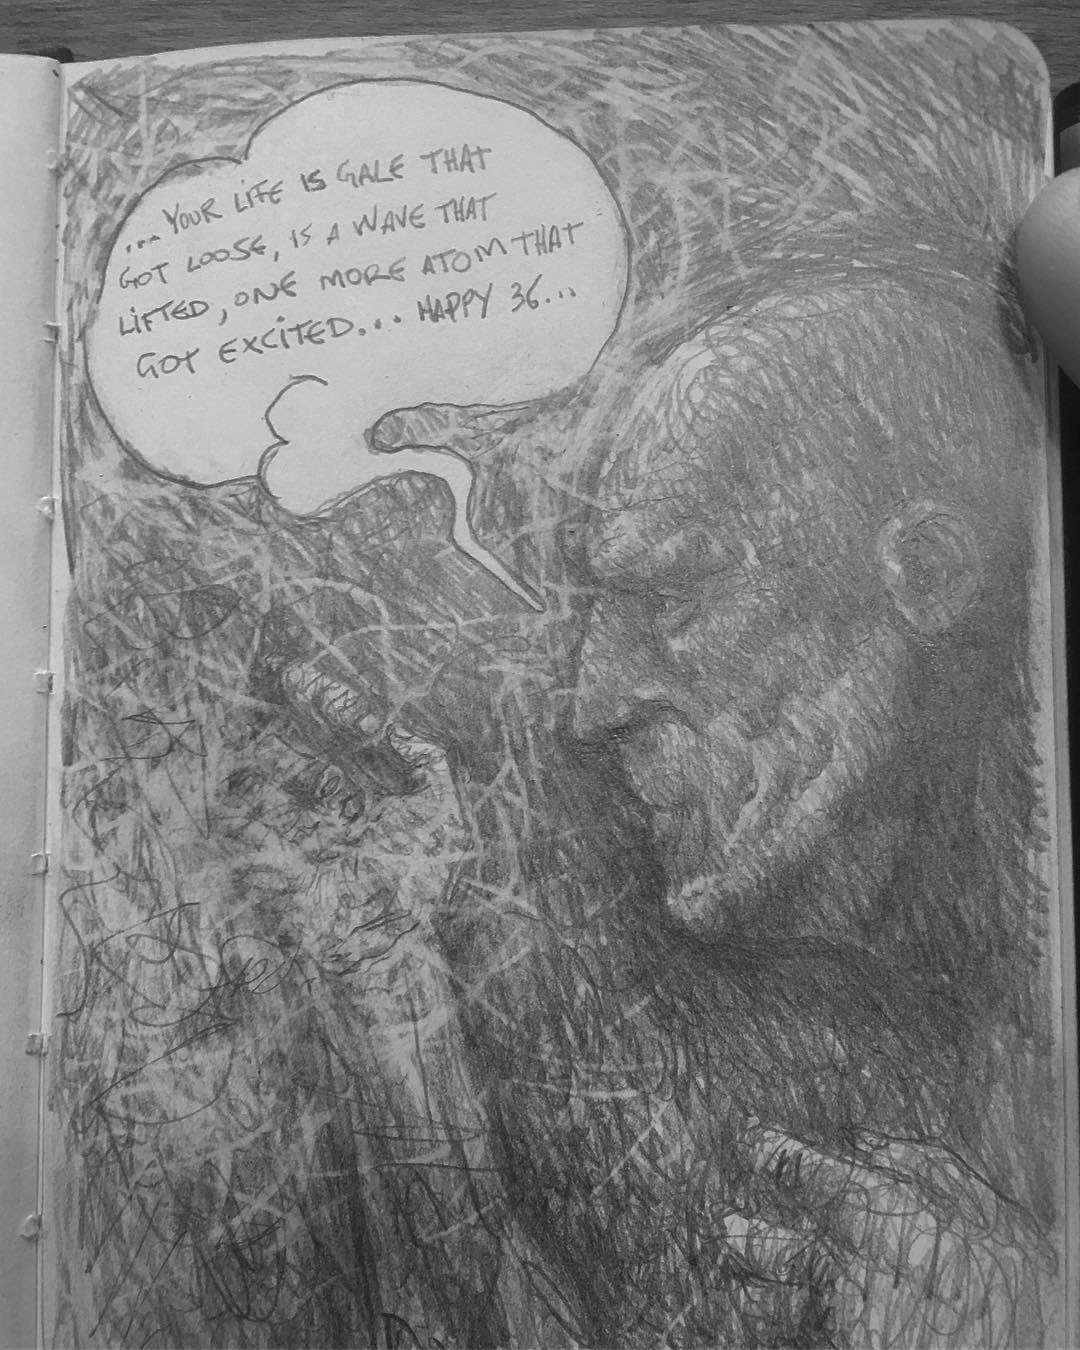 ... YOUR LIFE IS GALE THAT
GOT LOOSE, IS A WAVE THAT
LIFTED, ONE MORE ATOM THAT
GOT EXCITED... HAPPY 36...